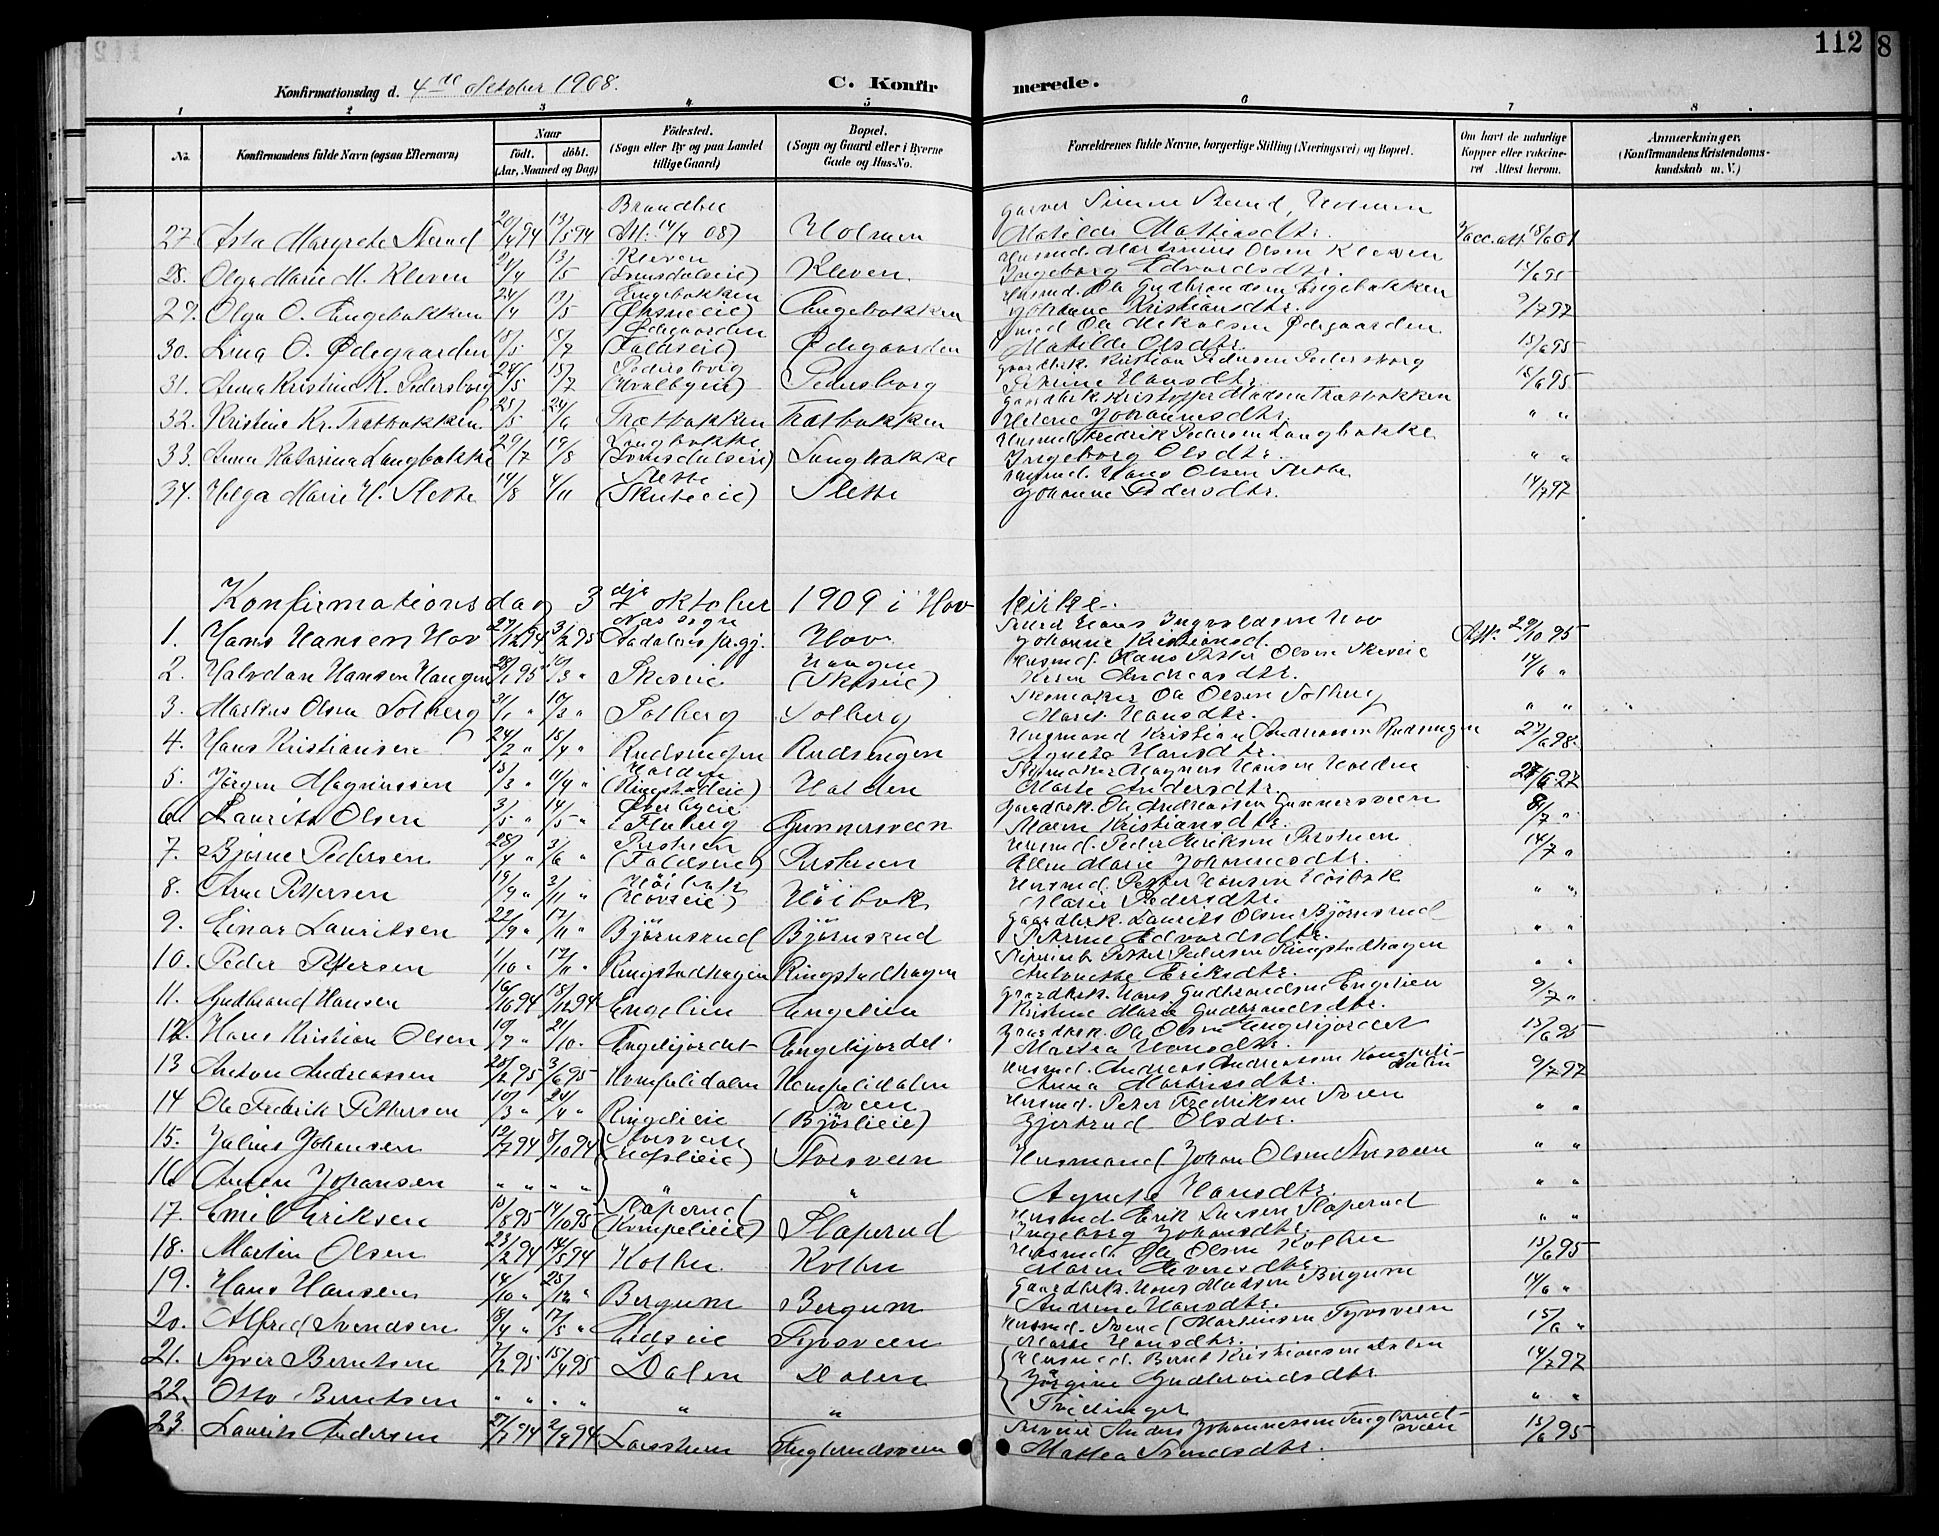 112
8
Konfirmationsdag d. 4de October 1908.
C. Konfirmerede.
1 2 3 4 5 6 7 8
No.
Konfirmandens fulde Navn (ogsaa Efternavn)
Naar
født. døbt.
(Aar, Maaned og Dag)
Födested.
(Sogn eller By og paa Landet tillige Gaard)
Bopæl.
(Sogn og Gaard eller i Byerne Gade og Hus-No.
Forældrenes fulde Navne, borgerlige Stilling (Næringsvei) og Bopæl.
Om havt de naturlige Kopper eller vakcineret Attest herom.
Anmærkninger.
(Konfirmandens Kristendomskundskab m. V.)
27. Asta Margrete Strand 20/4 94 13/5 94 Brandbu Att. 14/4 08) Holmen Garver Simen Strand, Holmen Matilde Mathiasdtr. Vacc.att 18/6 01
28. Olga Marie M. Kleven 21/4 13/5 Kleven Kleven Husmd. Martinius Olsen Kleven Ingeborg Edvardsdtr. 15/6 95
29. Olga O. Engebakken 24/4 13/5 Engebakken Engebakken Husmd. Ole Gudbrandsen Engebakken Johanne Kristiansdtr. 9/7 97
30. Lina O. Ødegaarden 15/7 Ødegaarden (Faldseie) Ødegaarden Smed Ole Nikolsen Ødegaarden Matilde Olsdtr. 15/6 95
31. Anna Kristine K. Pedersborg 24/5 15/7 Pedersborg (Hvalbyeie) Pedersborg Gaardbrk. Kristian Pedersen Pedersborg Petrine Hansdtr. 15/6 95
32. Kristine Kr. Trætbakken 25/5 24/6 Trætbakken Trætbakken Gaardbrk. Kristoffer Madsen Trætbakken Helene Johannesdtr. " "
33. Anna Katarina Langbakke 20/7 19/8 Langbakke Langbakke Husmd. Fredrik Pedersen Langbakke Ingeborg Olsdtr. " "
34. Helga Marie H. Slette 14/8 4/11 Slette Slette Husmd. Hans Olsen Slette Johanne Pedersdtr. 14/7 97
Konfirmationsdag 3dje oktober 1909 i Hov kirke.
1. Hans Hansen Hov 27/12 94 3/2 95 Næs sogn Aadalens prgj. Hov Hans Ingvoldsen Hov Johanne Kristiansd. Att. 29/10 95
2. Halvdan Hansen Haugen 28/1 95 10/3 " Skeseie Haugen (Skeseie) Husmd. Hans Petter Olsen Skeseie Karen Andreasdtr. 14/6 "
3. Markus Olsen Solberg 31/1 " 10/3 " Solberg Solberg Skomaker Ole Olsen Solberg Marit Hansdtr. " "
4. Hans Kristiansen 24/2 " 15/4 " Rudsengen Rudsengen Husmand Kristian Andreassen Rudsengen Agnete Hansdtr. 27/6 98.
5. Jörgen Magnussen 13/3 " 4/4 " Halden (Ringstadeie) Halden Skomaker Magnus Hansen Halden Marte Andersdtr. 28/6 97
6. Laurits Olsen 3/5 " 14/5 " Fluberg Gunnersveen Gaardbrk. Ole Andreassen Gunnersveen Maren Kristiansdtr. 8/7 "
7. Bjarne Pedersen 28/4 " 3/6 " (Faldseie) Husmd. Peder Eriksen Ellen Marie Johannesdtr. 14/7 "
8. Arne Pettersen 19/9 " 3/11 " Höibak (Hovseie) Höibak Husmd. Petter Hansen Höibak Marie Pedersdtr. " "
9. Einar Lauritsen 22/9 " 17/11 " Björnerud Björnerud Gaardbrk. Laurits Olsen Björnerud Petrine Edvardsdtr. " "
10. Peder Pettersen 1/10 " 17/11 " Ringstadhagen Ringstadhagen Petter Pedersen Ringstadhagen Antonette Eriksdtr. " "
11. Gudbrand Hansen 16/10 94 18/12 94 Engelien Engelien Gaardbrk. Hans Gudbrandsen Engelien Kristine Marie Gudbrandsdtr. 9/7 "
12. Hans Kristian Olsen 19/9 " 21/10 " Engelijordet Engelijordet Gaardbrk. Ole Olsen Engelijordet Martea Hansdtr. 15/6 95
13 Anton Andreassen 28/2 95 3/6 95 Kompelidalen Kompelidalen Husmd. Andreas Andreassen Kompelidalen Anna Martinsdtr. 9/7 97
14 Ole Fredrik Pettersen 10/3 " 24/4 " Ringelieie Sveen (Björlieie) Husmd. Peter Fredriksen Sveen Gjertrud Olsdtr. " "
15. Julius Johansen 12/7 94 8/10 94 Storsveen Storsveen Husmand Johan Olsen Storsveen " "
16 Anton Johansen " " " " " " Agnethe Hansdtr. " "
17. Emil Eriksen 10/8 95 14/10 95 Slaperud (Kompelieie) Slaperud Husmd. Erik Larsen Slaperud Ingeborg Johansdtr. " "
18. Martin Olsen 23/2 94 14/5 94 Kolbu Kolbu Husmd. Ole Olsen Kolbu Maren Evensdtr. 15/6 95
19. Hans Hansen 14/10 " 25/12 " Bergum Bergum Gaardbrk. Hans Madsen Bergum Andrine Hansdtr. 14/6 "
20. Alfred Svendsen 18/4 " 17/5 " Lidseie Tyvsveen Husmd. Svend Martinsen Tyvsveen Marte Hansdtr. 15/6 "
21. Syver Berntsen 7/2 95 15/4 95 Dalen Dalen Husmd. Bernt Kristiansen Dalen Jörgine Gudbrandsdtr 14/7 97
22. Otto Berntsen " " " " " " Tvillinger " "
23. Laurits Andersen 27/7 94 2/9 94 Englandsveen Anders Johannessen Mathea Svendsdtr. 15/6 95